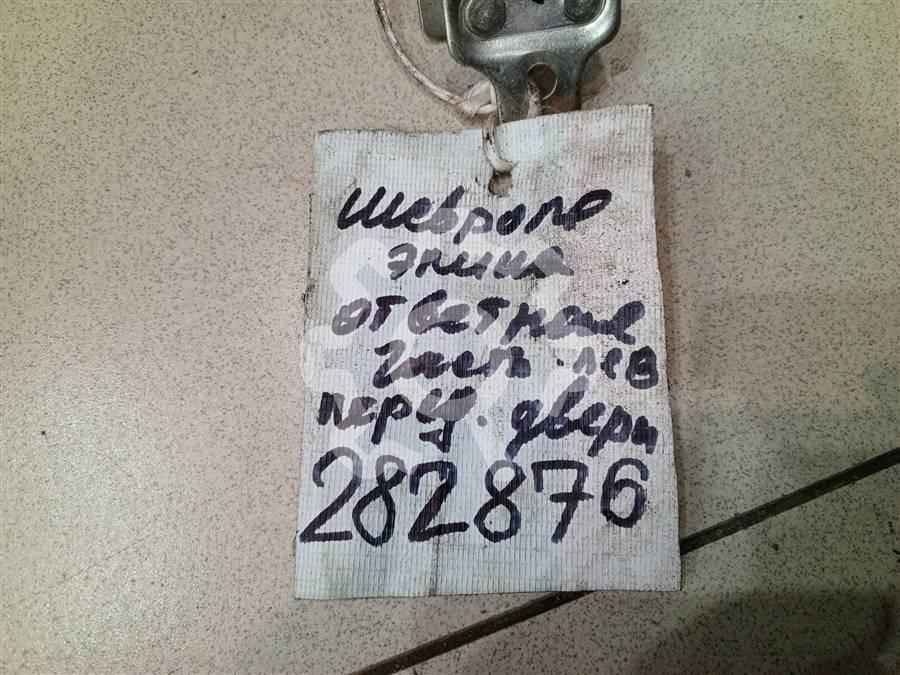 Шевроле
Эпика
ответная
часть лев
перед. двери
282876